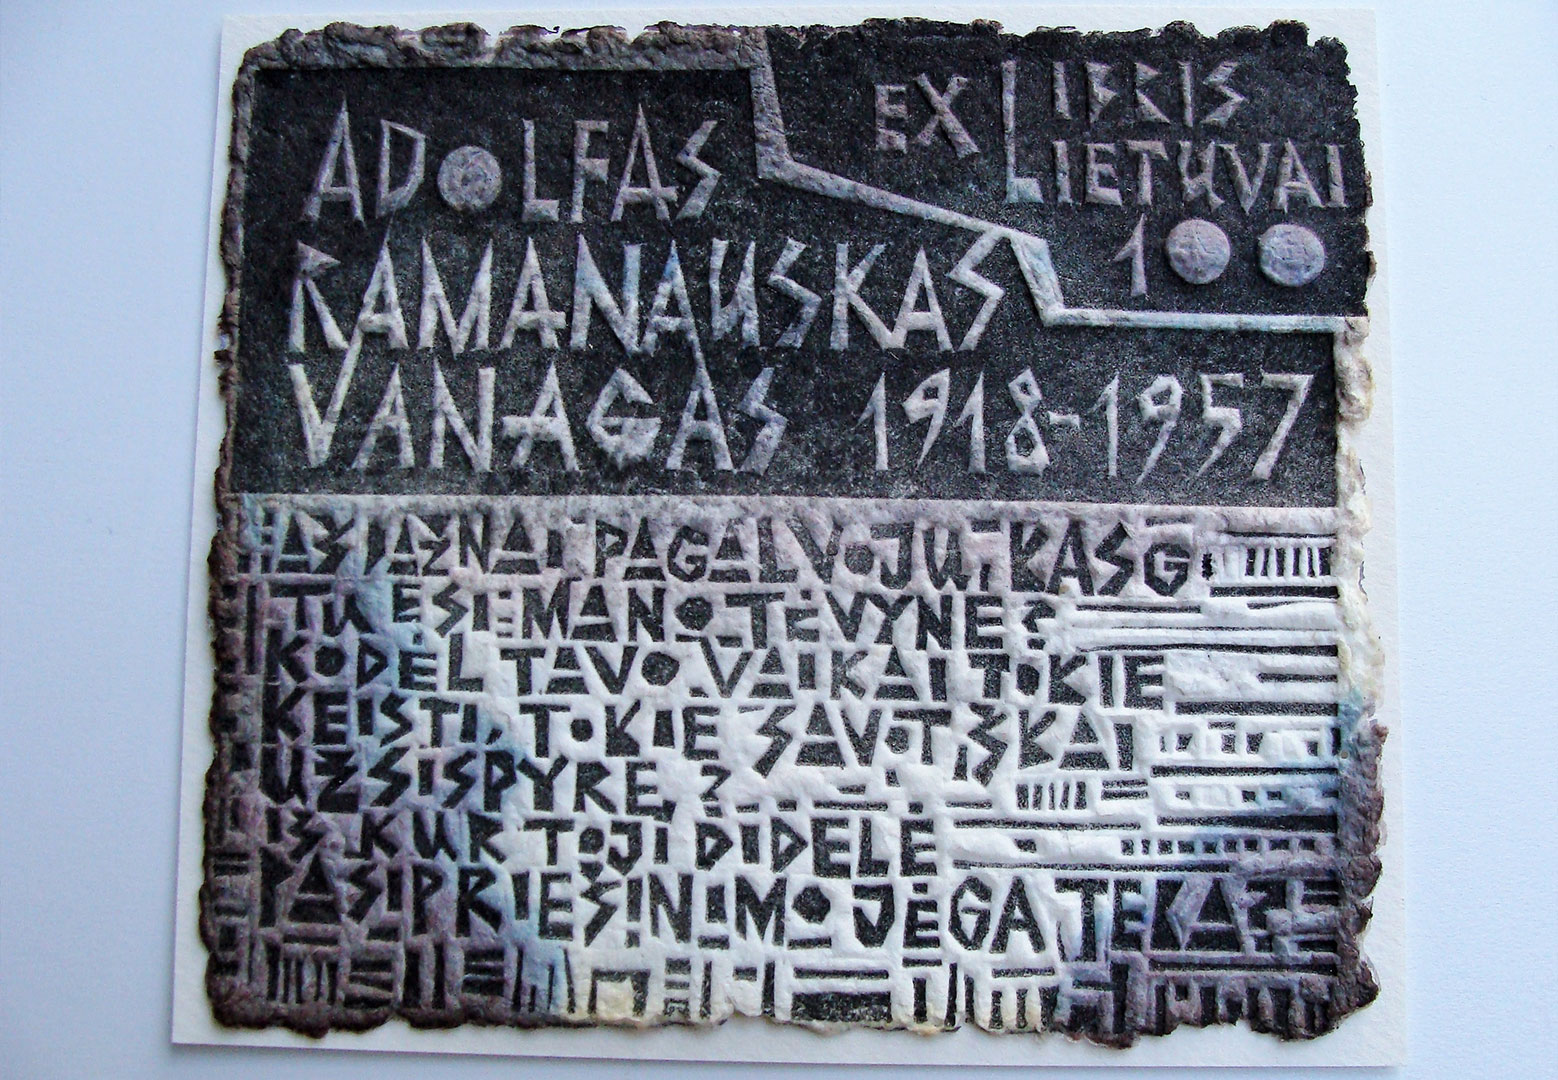 EX LIBRIS
LIETUVAI
100
ADOLFAS
RAMANAUSKAS
VANAGAS 1918-1957
AŠ DAŽNAI PAGALVOJU, KAS G
I TU ESI MANO TĖVYNE?
KODĖL TAVO VAIKAI TOKIE
KEISTI, TOKIE SAVOTIŠKAI
UŽSISPYRĘ?
IŠ KUR TOJI DIDELĖ
PASIPRIEŠINIMO JĖGA TEKA?